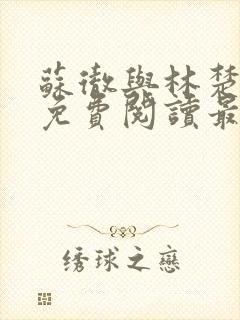 蘇徹與林楚
免費閱讀最
绣球之戀